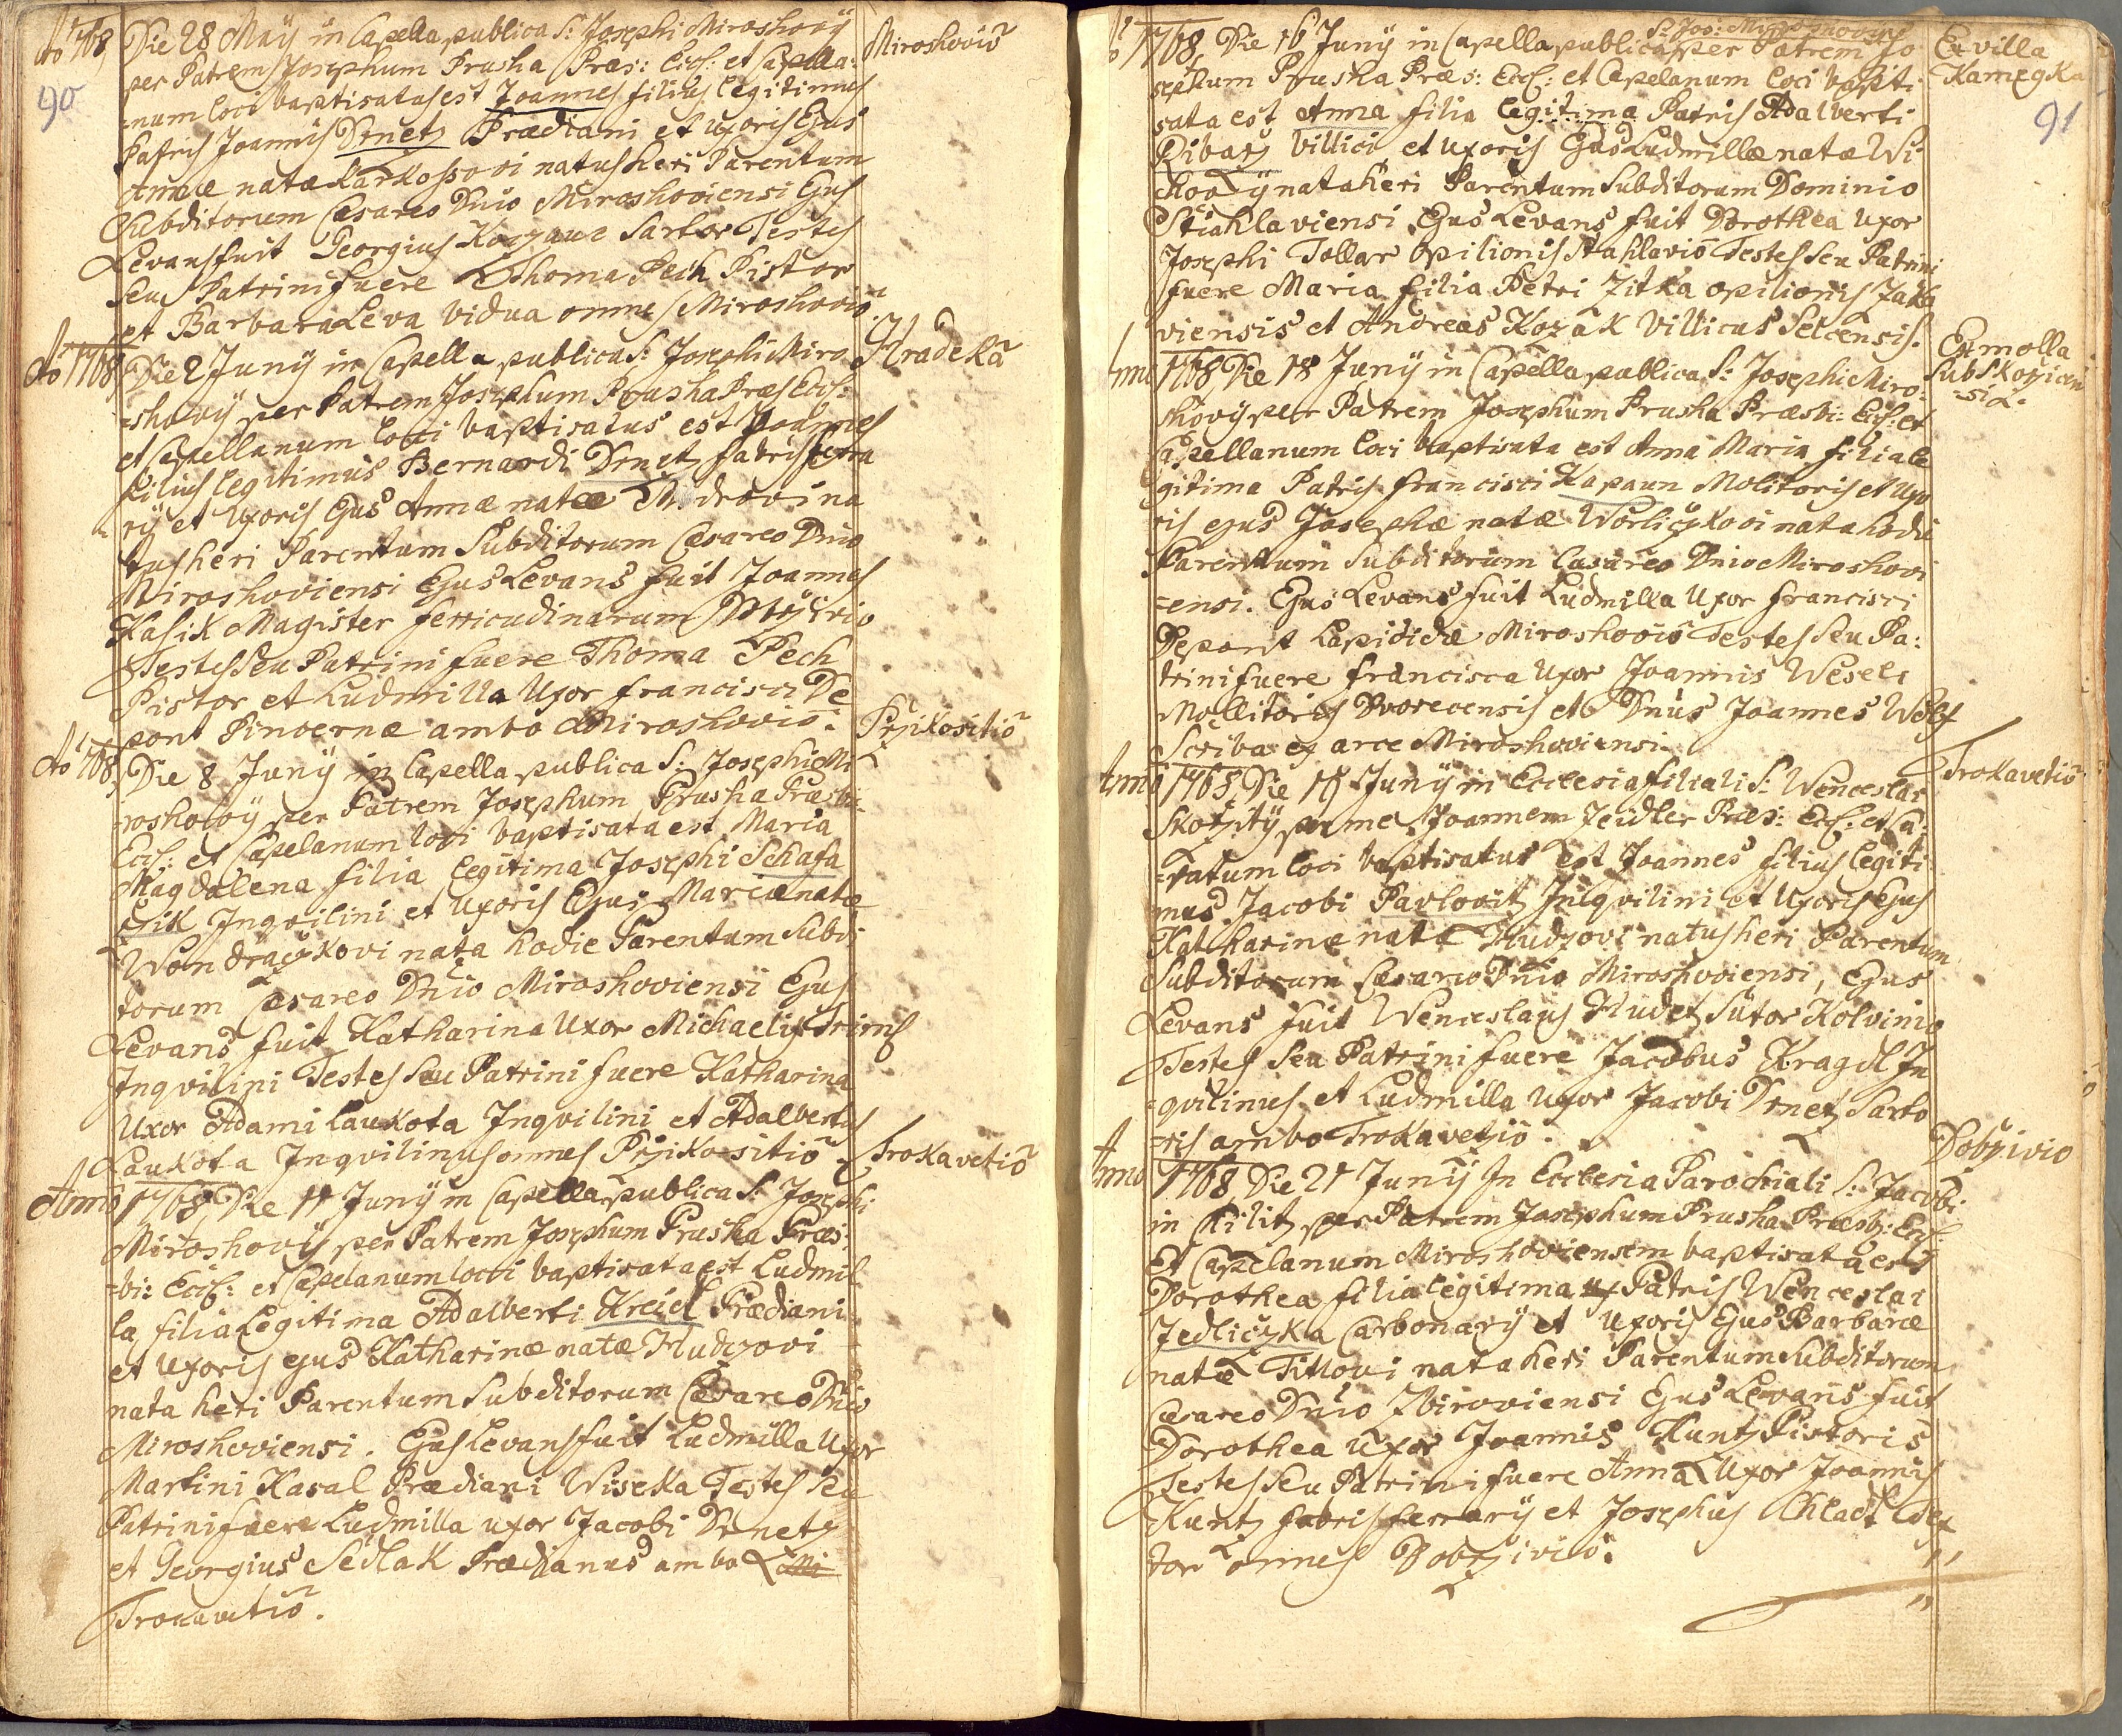 Ao 1768 Die 28 Maÿ in Capella publica S: Josephi Miroshovÿ
Miroshoviô
90
per Patrem Josephum Prusha Præs: Eccl: et Capella:
=num loci baptisatus est Joannes filius legitimus
Patris Joannis Drnetz Prædiani et Uxoris Ejus
Annæ natæ Karkossovi natus heri Parentum
Subditorum Cæsareo Dnio Miroshoviensi Ejus
Levans fuit Georgius Sartor Testes
Seu Patrini fuere Thoma Pech Pistor
et Barbara Leva Vidua omnes Miroshoviô.
Ao 1768 Die 2 Junÿ in Capella publica S: Josephi Miro
Hradekâ
=shovÿ per Patrem Josephum Prusha Præs Eccl:
et Capellanum loci baptisatus est Joannes
filius legitimus Bernardi Drnetz fabri ferra
rÿ et Uxoris Ejus Annæ natæ na
tus heri Parentum Subditorum Cæsareo Dnio
Miroshoviensi Ejus Levans fuit Joannes
Kasik Magister ferricudinarum
Testes Seu Patrini fuere Thoma Pech
Pistor et Ludmilla Uxor Francisci De
pont Pincernæ ambo Miroshoviô.
Ao 1768 Die 8 Junÿ in Capella publica S: Josephi Mi
Przikositiô
=roshovÿ per Patrem Josephum Prusha Præsbi:
Eccl: et Capelanum loci baptisata est Maria
Magdalena filia legitima Josephi Schafa
rik Inqvilini et Uxoris Ejus Mariæ natæ
Wondraczkovi nata hodie Parentum Subdi
torum Cæsareo Dnio Miroshoviensi Ejus
Levans fuit Katharina Uxor Michaelis
Inqvilini Testes Seu Patrini fuere Katharina
Uxor Adami Laukota Inqvilini et Adalbertus
Laukota Inqvilinus omnes Przikositiô
Trokavetiô
Anno 1768 Die 11 Junÿ in Capella publica S: Josephi
Miroshovÿ per Patrem Josephum Prusha Præs:
=bi: Eccl: et Capelanum loci baptisata est Ludmil
la filia Legitima Adalberti Kreidl Prædiani
et Uxoris ejus Katharinæ natæ Hudczovi
nata heri Parentum Subditorum Cæsareo Dnio
Miroshoviensi. Ejus Levans fuit Ludmilla Uxor
Martini Kasal Prædiani Wiseka Testes Seu
Patrini fuere Ludmilla uxor Jacobi Drnetz
et Georgius Sedlak Prædianus ambo
Trokavetiô.
S: Jos: Miroshovÿ
Ao 1768 Die 16 Junÿ in Capella publica per Patrem Jo
Ex villa
Kamegka
91
sephum Prusha Præs: Eccl: et Capelanum loci bapti
sata est Anna filia legitima Patris Adalberti
Ribarz Villici et Uxoris Ejus Ludmillæ natæ Wi
nata heri Parentum Subditorum Dominio
Stiahlaviensi Ejus Levans fuit Dorothea Uxor
Josephi Tollar Opilionis Stahlaviô Testes Seu Patrini
fuere Maria filia Petri Zitka opilionis Zaka
viensis et Andreas Kozak Villicus Selcensis.
Anno 1768 Die 18 Junÿ in Capella publica S: Josephi Miro:
Ex molla
sub Skorzicen
=si
shovÿ per Patrem Josephum Prusha Præsbi: Eccl: et
Capellanum loci baptisata est Anna Maria filia le
gitima Patris Francisci Kapaun Molitoris et Uxo
ris ejus Josephæ natæ Worliczkovi nata hodie
Parentum Subditorum Cæsareo Dnio Miroshovi
=ensi. Ejus Levans fuit Ludmilla Uxor Francisci
Depont Lapicidæ Miroshoviô Testes Seu Pa:
trini fuere Francisca Uxor Joannis Weseli
Mollitoris Dvorecensis et Dnus Joannes Wolf
Scriba ex arce Miroshoviensi.
Anno 1768 Die 18 Junÿ in Ecclesia filiali S: Wenceslai
Trokavetiô
Skorzitÿ per me Joannem Zeidler Præs: Eccl: et Cu:
=ratum loci baptisatus est Joannes filius legiti
mus Jacobi Pavlovitz Inqvilini et Uxoris Ejus
Katharinæ natæ Hudzovi natus heri Parentum
Subditorum Cæsareo Dnio Miroshoviensi, Ejus
Levans fuit Wenceslaus Hudetz Sutor Kolvinio
Testes Seu Patrini fuere Jacobus Kragdl In
=qvilinus et Ludmilla uxor Jacobi Drnetz Sarto
=ris ambo Trokavetziô.
Anno 1768 Die 21 Junÿ In Ecclesia Parochiali S: Jacobi
Dobrzivio
in Witz per Patrem Josephum Prusha Præsbi: Eccl
Et Capelanum Miroshoviensem baptisata est
Dorothea filia legitima Patris Wenceslai
Jedliczka Carbonarÿ et Uxoris Ejus Barbaræ
natæ Tittlovi nata heri Parentum Subditorum
Cæsareo Dnio Zbiroviensi Ejus Levans fuit
Dorothea Uxor Joannis Kuntz Pistoris
Testes Seu Patrini fuere Anna Uxor Joannis
Kuntz fabri ferrarÿ et Josephus Chladt
tor omnes Dobrziviô.